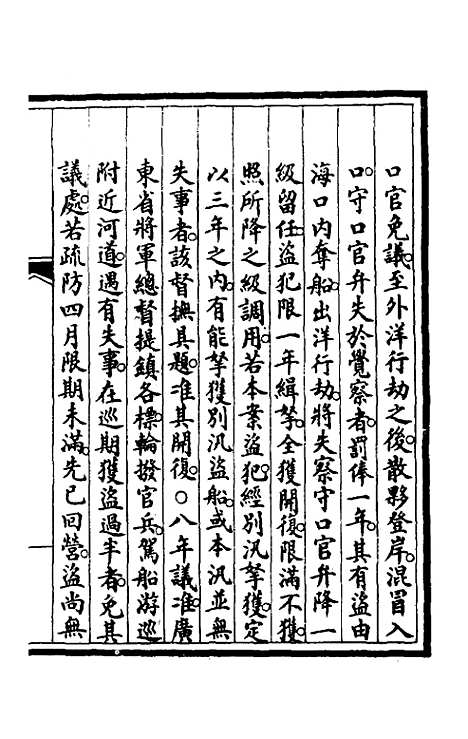 口官免議。至外洋行劫之後。散夥登岸。混冒入
口。守口官弁失於覺察者。罰俸一年。其有盜由
海口內奪船。出洋行劫。將失察守口官弁降一
級留任。盜犯限一年緝拏。全獲開復。限滿不獲。
照所降之級調用。若本案盜犯。經別汛拏獲。定
以三年之內。有能拏獲別汛盜船。或本汛並無
失事者。該督撫具題。准其開復。○八年議准。廣
東省將軍總督提鎮各標。輪撥官兵。駕船游巡
附近河道。遇有失事。在巡期獲盜過半者。免其
議處。若疏防四月限期未滿。先已回營。盜尚無